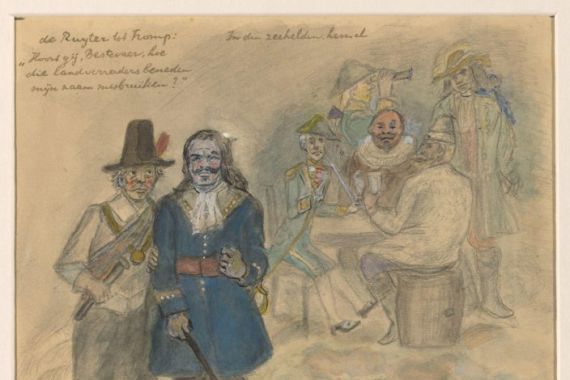 de Ruyter tot Tromp:
"Hoort gij, Bestevaer, hoe
die landverraders beneden
mijn naam misbruiken?"
In den zeehelden hemel